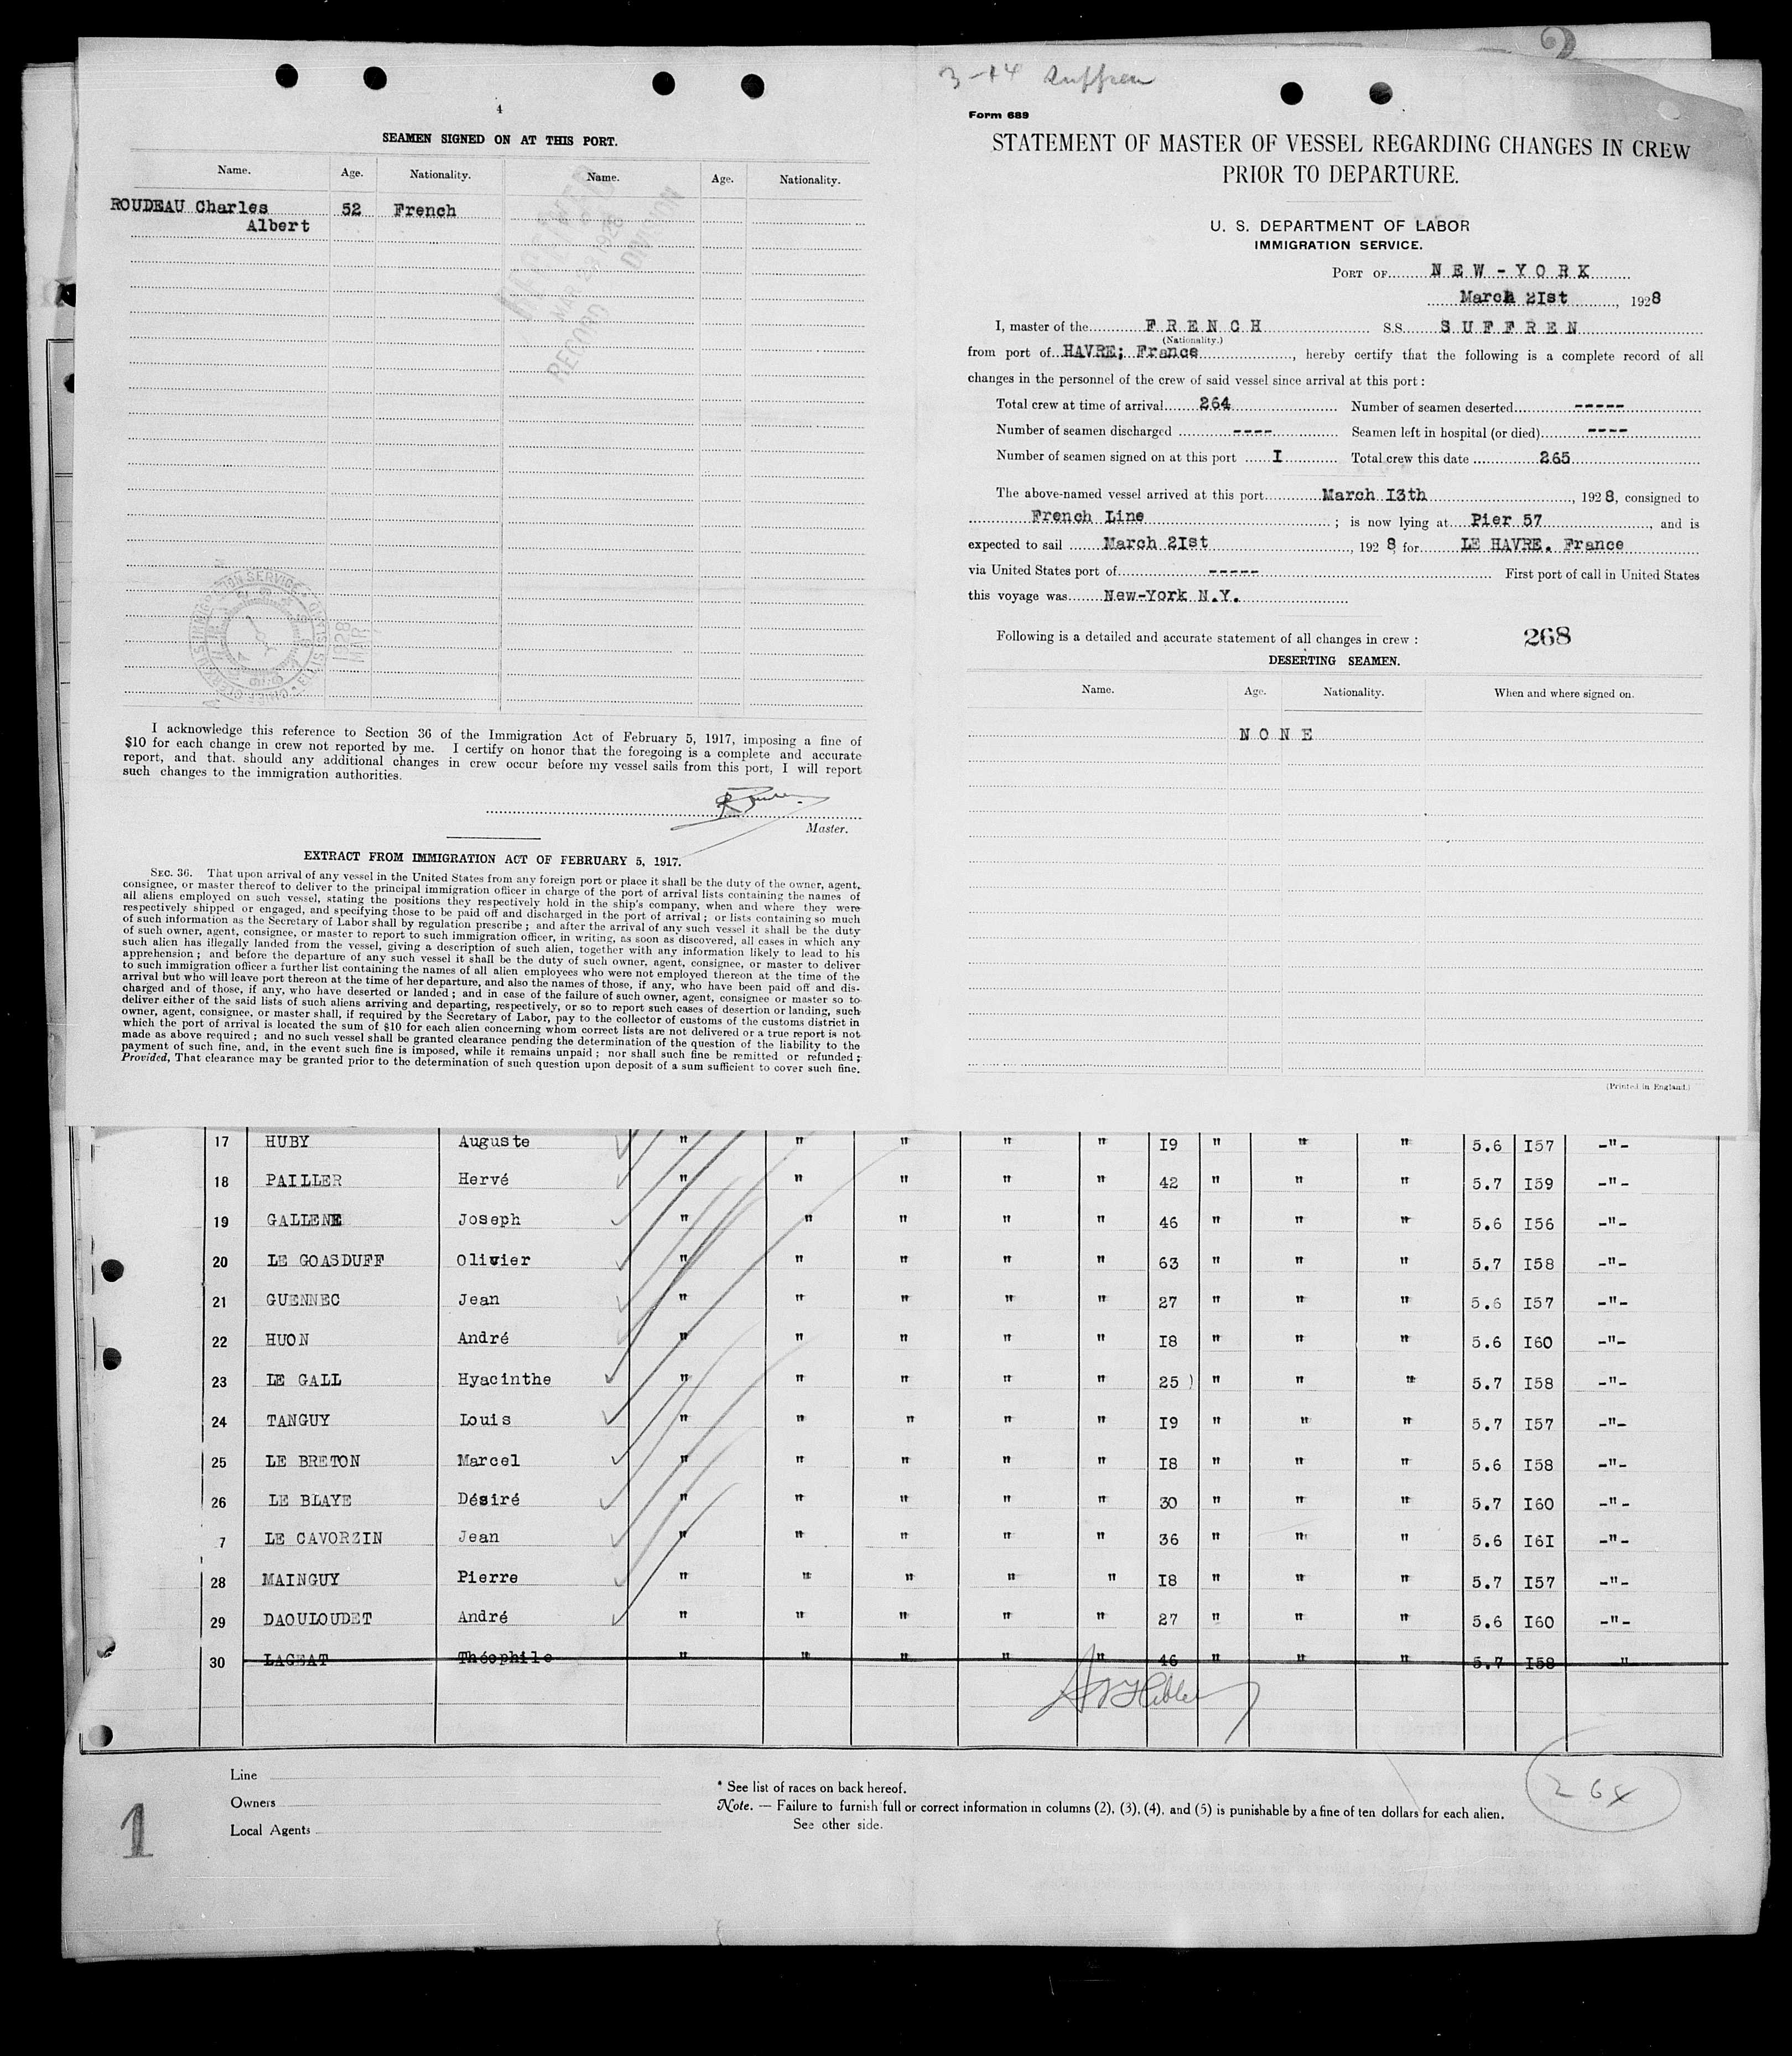 4
SEAMEN SIGNED ON AT THIS PORT.
Name. Age. Nationality. Name. Age. Nationality.
ROUDEAU Charles 52 French
Albert
MAR 1928
RECORD DIVISION
I acknowledge this reference to Section 36 of the Immigration Act of February 5, 1917, imposing a fine of
$10 for each change in crew not reported by me. I certify on honor that the foregoing is a complete and accurate
report, and that. should any additional changes in crew occur before my vessel sails from this port, I will report
such changes to the immigration authorities.
Master.
EXTRACT FROM IMMIGRATION ACT OF FEBRUARY 5, 1917.
SEC. 36. That upon arrival of any vessel in the United States from any foreign port or place it shall be the duty of the owner, agent,
consignee, or master thereof to deliver to the principal immigration officer in charge of the port of arrival lists containing the names of
all aliens employed on such vessel, stating the positions they respectively hold in the ship's company, when and where they were
respectively shipped or engaged, and specifying those to be paid off and discharged in the port of arrival; or lists containing so much
of such information as the Secretary of Labor shall by regulation prescribe; and after the arrival of any such vessel it shall be the duty
of such owner, agent, consignee, or master to report to such immigration officer, in writing, as soon as discovered, all cases in which any
such alien has illegally landed from the vessel, giving a description of such alien, together with any information likely to lead to his
apprehension; and before the departure of any such vessel it shall be the duty of such owner, agent, consignee, or master to deliver
to such immigration officer a further list containing the names of all alien employees who were not employed thereon at the time of the
arrival but who will leave port thereon at the time of her departure, and also the names of those, if any, who have been paid off and dis-
charged and of those, if any, who have deserted or landed; and in case of the failure of such owner, agent, consignee or master so to
deliver either of the said lists of such aliens arriving and departing, respectively, or so to report such cases of desertion or landing, such
owner, agent, consignee, or master shall, if required by the Secretary of Labor, pay to the collector of customs of the customs district in
which the port of arrival is located the sum of $10 for each alien concerning whom correct lists are not delivered or a true report is not
made as above required; and no such vessel shall be granted clearance pending the determination of the question of the liability to the
payment of such fine, and, in the event such fine is imposed, while it remains unpaid; nor shall such fine be remitted or refunded;
Provided, That clearance may be granted prior to the determination of such question upon deposit of a sum sufficient to cover such fine.
2
3-14 Suffren
Form 689
STATEMENT OF MASTER OF VESSEL REGARDING CHANGES IN CREW
PRIOR TO DEPARTURE.
U. S. DEPARTMENT OF LABOR
IMMIGRATION SERVICE.
PORT OF NEW-YORK
March 2Ist, 1928
I, master of the FRENCH S.S. SUFFREN
(Nationality.)
from port of HAVRE; France, hereby certify that the following is a complete record of all
changes in the personnel of the crew of said vessel since arrival at this port:
Total crew at time of arrival 264 Number of seamen deserted -----
Number of seamen discharged ---- Seamen left in hospital (or died) ----
Number of seamen signed on at this port I Total crew this date 265
The above-named vessel arrived at this port March I3th, 1928, consigned to
French Line; is now lying at Pier 57, and is
expected to sail March 2Ist, 1928, for LE HAVRE. France
via United States port of ----- First port of call in United States
this voyage was New-York N.Y.
Following is a detailed and accurate statement of all changes in crew: 268
DESERTING SEAMEN.
Name. Age. Nationality. When and where signed on.
NONE
(Printed in England.)
17 HUBY Auguste " " " " " I9 " " " 5.6 I57 -"-
18 PAILLER Hervé " " " " " 42 " " " 5.7 I59 -"-
19 GALLENE Joseph " " " " " 46 " " " 5.6 I56 -"-
20 LE GOASDUFF Olivier " " " " " 63 " " " 5.7 I58 -"-
21 GUENNEC Jean " " " " " 27 " " " 5.6 I57 -"-
22 HUON André " " " " " I8 " " " 5.6 I60 -"-
23 LE GALL Hyacinthe " " " " " 25 ) " " " 5.7 I58 -"-
24 TANGUY Louis " " " " " I9 " " " 5.7 I57 -"-
25 LE BRETON Marcel " " " " " I8 " " " 5.6 I58 -"-
26 LE BLAYE Désiré " " " " " 30 " " " 5.7 I60 -"-
7 LE CAVORZIN Jean " " " " " 36 " " " 5.6 I6I -"-
28 MAINGUY Pierre " " " " " I8 " " " 5.7 I57 -"-
29 DAOULOUDET André " " " " " 27 " " " 5.6 I60 -"-
30 LAGEAT Théophile " " " " " 46 " " " 5.7 I58 "
Line
Owners
Local Agents
* See list of races on back hereof.
Note. — Failure to furnish full or correct information in columns (2), (3), (4), and (5) is punishable by a fine of ten dollars for each alien.
See other side.
264
1